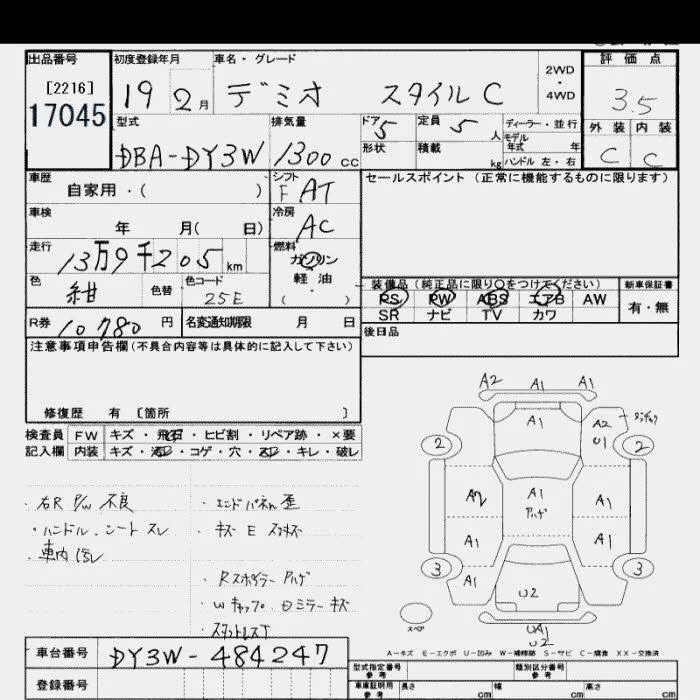 出品番号 初度登録年月 車名・グレード 評価点
[2216]
17045
19 2月 デミオ スタイルC
2WD
・
4WD
3.5
型式 排気量 ドア 5 定員 5人 ディーラー・並行 外装 内装
DBA-DY3W 1300cc 形状 積載 kg モデル年式 年 ハンドル 左・右 C C
車歴 シフト セールスポイント(正常に機能するものに限ります)
自家用・( ) FAT
車検 冷房
年 月( 日) AC
走行 燃料
13万9千205km ガソリン
軽油
( )
色 色替 色コード
紺 25E
装備品(純正品に限り○をつけてください) 新車保証書
PS PW ABS エアB AW 有・無
SR ナビ TV カワ
R券 10780円 名変通知期限 月 日
後日品
注意事項申告欄(不具合内容等は具体的に記入して下さい)
修復歴 有 〔箇所 〕
検査員 FW キズ・飛石・ヒビ割・リペア跡・×要
記入欄 内装 キズ・・コゲ・穴・・キレ・破レ
・右R P/W 不良
・ハンドル、シート スレ
・車内 汚レ
・エンドパネル 歪
・キズ E
・ ハゲ
・Wキャップ、 ミラー キズ
・スタットレスT
A2 A1 A1
A1 A2
U1
2 2
A2 A1 A1
ハゲ
A1 A1
3 A1 3
U2
UA1
U2
スペア
A-キズ E-エクボ U-凹み W-補修跡 S-サビ C-腐食 XX-交換済
車台番号 DY3W-484247
登録番号
型式指定番号
参考 類別区分番号
参考
車庫証明用
参考 長さ cm 幅 cm 高さ cm